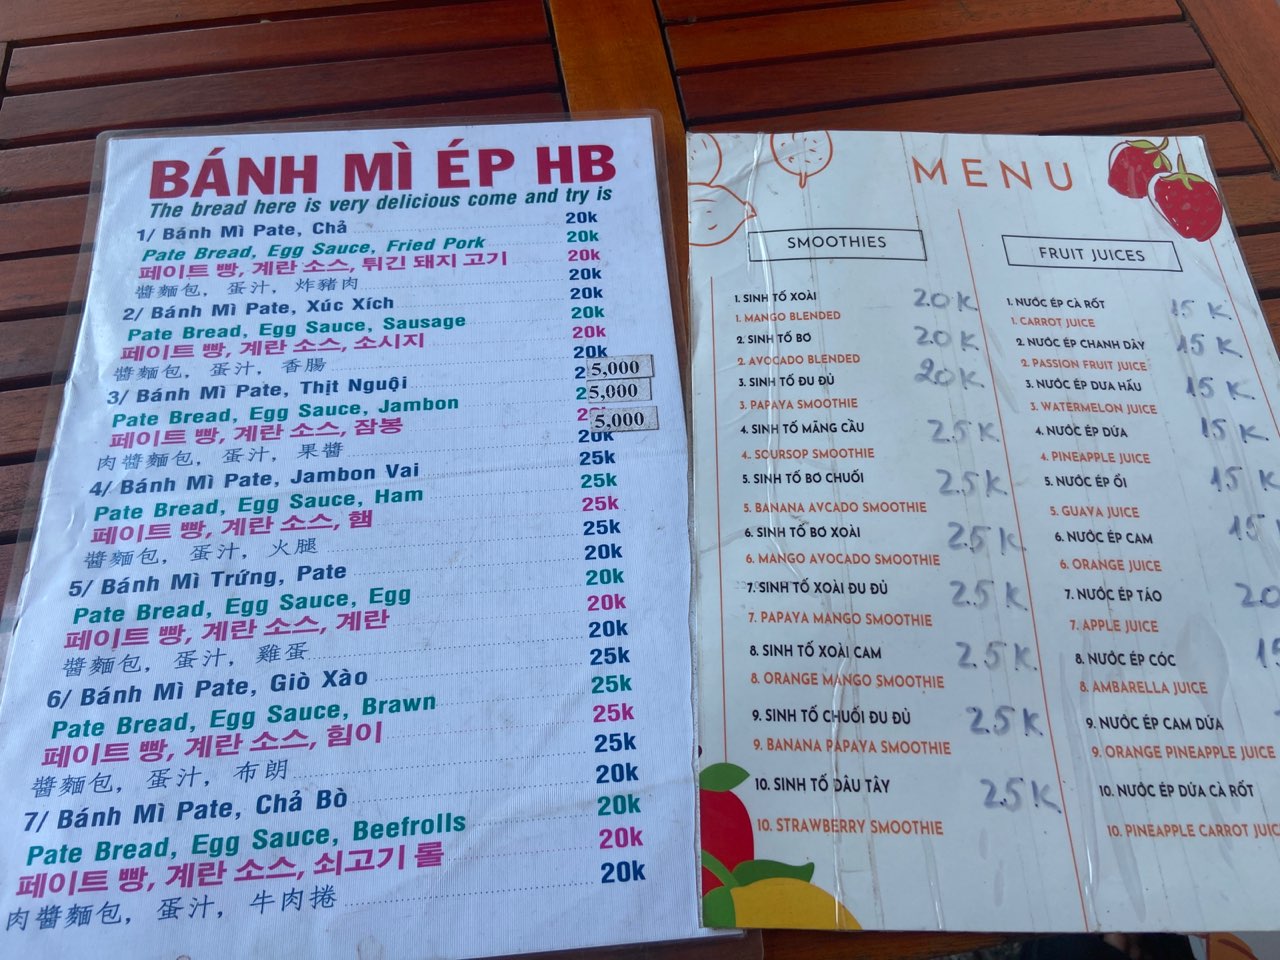 BÁNH MÌ ÉP HB
The bread here is very delicious come and try is
1/ Bánh Mì Pate, Chả 20k
Pate Bread, Egg Sauce, Fried Pork 20k
페이트 빵, 계란 소스, 튀긴 돼지 고기 20k
醬麵包, 蛋汁, 炸豬肉 20k
2/ Bánh Mì Pate, Xúc Xích 20k
Pate Bread, Egg Sauce, Sausage 20k
페이트 빵, 계란 소스, 소시지 20k
醬麵包, 蛋汁, 香腸 20k
3/ Bánh Mì Pate, Thịt Nguội 2 5,000
Pate Bread, Egg Sauce, Jambon 2 5,000
페이트 빵, 계란 소스, 잠봉 2 5,000
肉醬麵包, 蛋汁, 果醬 20k
4/ Bánh Mì Pate, Jambon Vai 25k
Pate Bread, Egg Sauce, Ham 25k
페이트 빵, 계란 소스, 햄 25k
醬麵包, 蛋汁, 火腿 25k
5/ Bánh Mì Trứng, Pate 20k
Pate Bread, Egg Sauce, Egg 20k
페이트 빵, 계란 소스, 계란 20k
醬麵包, 蛋汁, 雞蛋 20k
6/ Bánh Mì Pate, Giò Xào 25k
Pate Bread, Egg Sauce, Brawn 25k
페이트 빵, 계란 소스, 힘이 25k
醬麵包, 蛋汁, 布朗 25k
7/ Bánh Mì Pate, Chả Bò 20k
Pate Bread, Egg Sauce, Beefrolls 20k
페이트 빵, 계란 소스, 쇠고기 롤 20k
肉醬麵包, 蛋汁, 牛肉捲 20k
MENU
SMOOTHIES
1. SINH TỐ XOÀI 20K
1. MANGO BLENDED
2. SINH TỐ BƠ 20K
2. AVOCADO BLENDED
3. SINH TỐ ĐU ĐỦ 20K
3. PAPAYA SMOOTHIE
4. SINH TỐ MÃNG CẦU 25K
4. SOURSOP SMOOTHIE
5. SINH TỐ BƠ CHUỐI 25K
5. BANANA AVCADO SMOOTHIE
6. SINH TỐ BƠ XOÀI 25K
6. MANGO AVOCADO SMOOTHIE
7. SINH TỐ XOÀI ĐU ĐỦ 25K
7. PAPAYA MANGO SMOOTHIE
8. SINH TỐ XOÀI CAM 25K
8. ORANGE MANGO SMOOTHIE
9. SINH TỐ CHUỐI ĐU ĐỦ 25K
9. BANANA PAPAYA SMOOTHIE
10. SINH TỐ DÂU TÂY 25K
10. STRAWBERRY SMOOTHIE
FRUIT JUICES
1. NƯỚC ÉP CÀ RỐT 15K
1. CARROT JUICE
2. NƯỚC ÉP CHANH DÂY 15K
2. PASSION FRUIT JUICE
3. NƯỚC ÉP DƯA HẤU 15K
3. WATERMELON JUICE
4. NƯỚC ÉP DỨA 15K
4. PINEAPPLE JUICE
5. NƯỚC ÉP ỔI 15K
5. GUAVA JUICE
6. NƯỚC ÉP CAM 15
6. ORANGE JUICE
7. NƯỚC ÉP TÁO 20
7. APPLE JUICE
8. NƯỚC ÉP CÓC 15
8. AMBARELLA JUICE
9. NƯỚC ÉP CAM DỨA
9. ORANGE PINEAPPLE JUICE
10. NƯỚC ÉP DỨA CÀ RỐT
10. PINEAPPLE CARROT JUIC